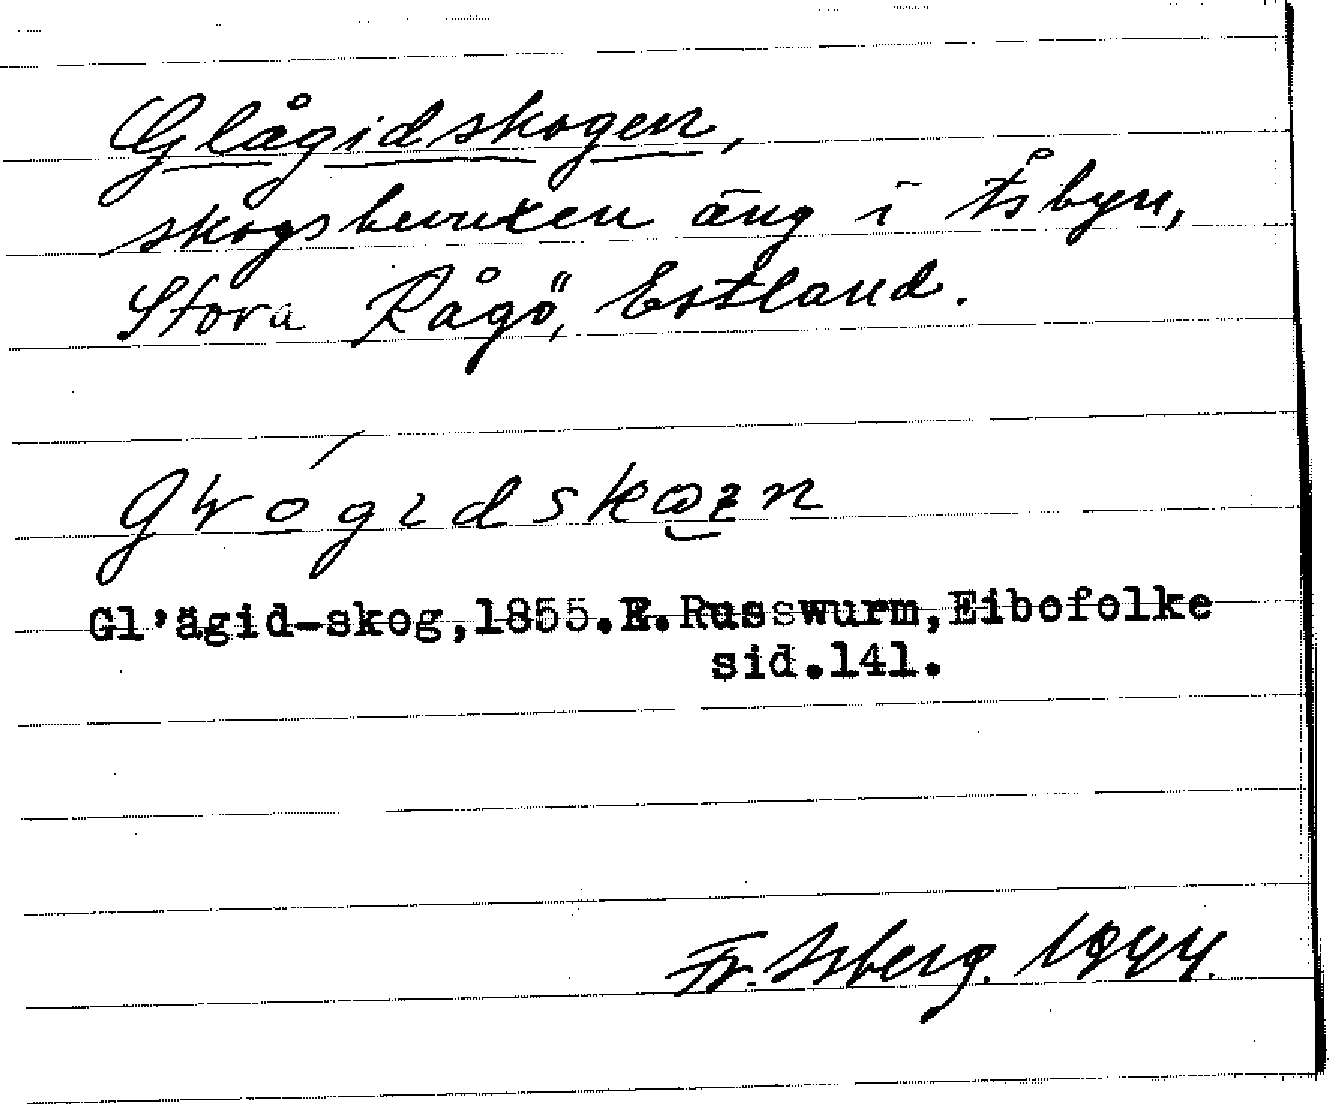 Glågidskogen,
skogsbevuxen äng i Åsbyn,
Stora Rågö, Estland.
Gl'ägid-skog,1855.E.Russwurm,Eibofolke
sid.141.
Fr. Isberg. 1944.